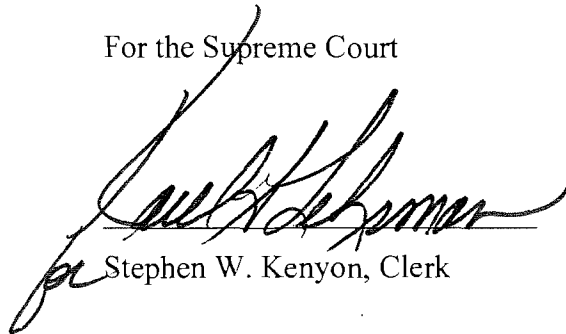 For the Supreme Court
for Stephen W. Kenyon, Clerk